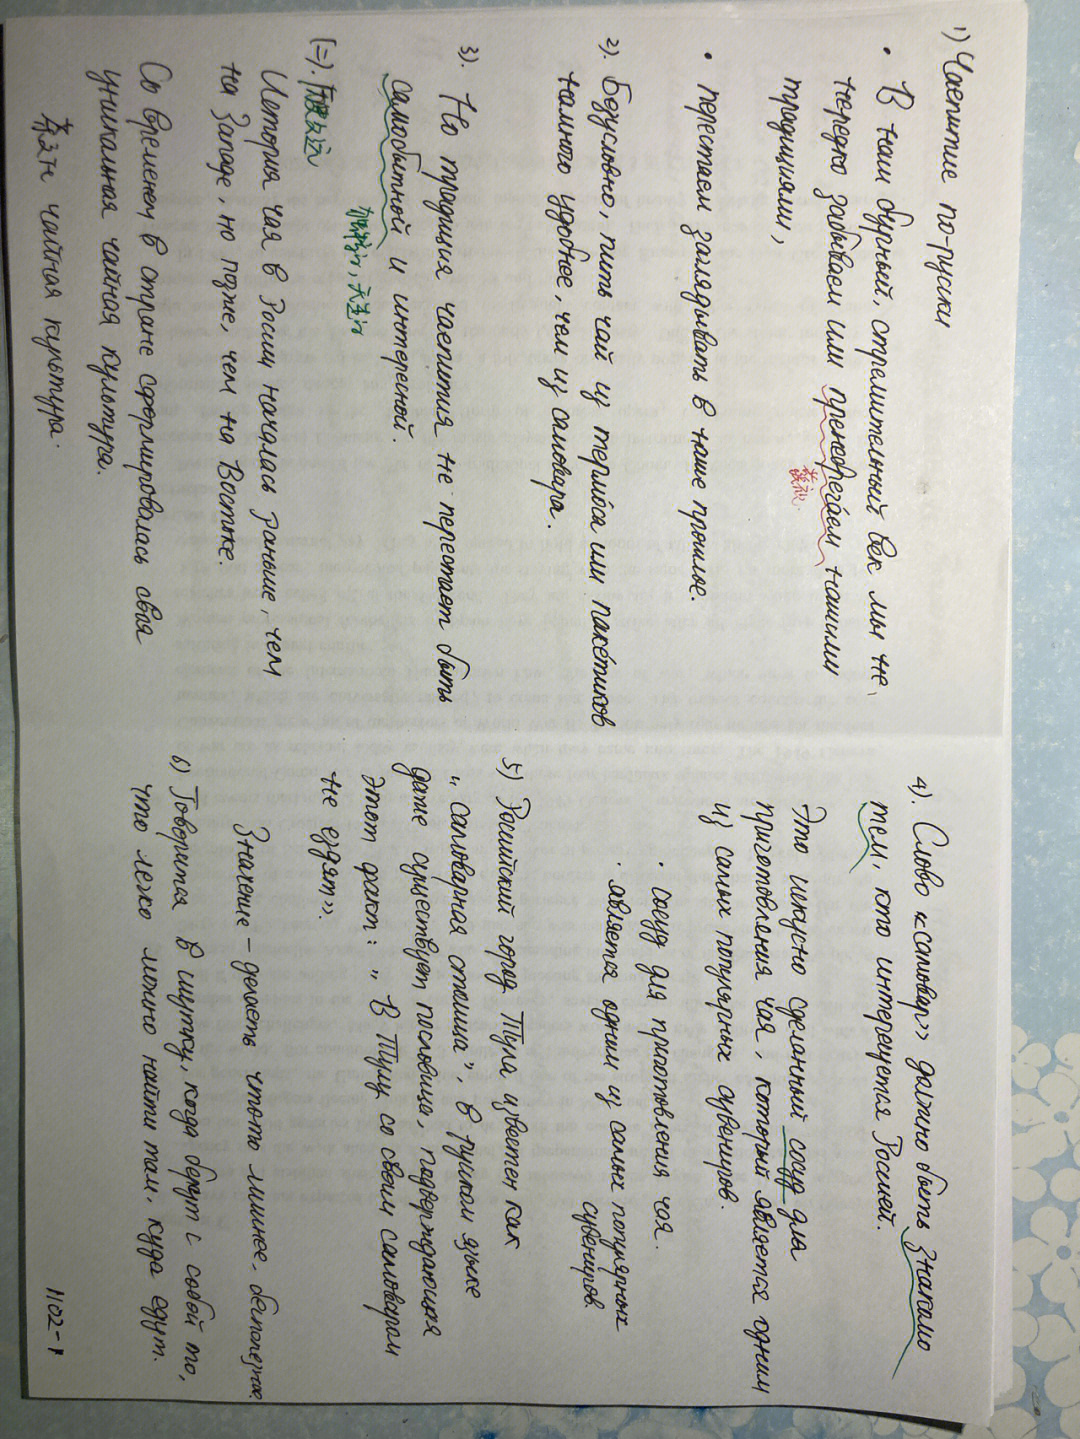 1) Чаепитие по-русски
• В наш бурный, стремительный век мы не,
передко забываем или пренебрегаем нашими
традициями,
• перестаем заглядывать в наше прошлое.
2). Безусловно, пить чай из термо́са или паке́тиков
намного удобнее чем из самовара.
3). Но традиция чаепития не перестает быть
самобытной и интересной.
(二).
История чая в Росии началась раньше, чем
на Западе, но позже, чем на Востоке.
Со временем в стране сформировалась своя
уникальная чайная культура.
чайная культура.
4). Слово «самовар» должно быть знакомо
тем, кто интересуется Россией.
Это искусно сделанный сосуд для
приготовления чая, который является одним
из самых популярных сувениров.
• сосуд для приготовления чая.
• является одним из самых популярных
сувениров.
5) Российский город Тула известен как
"самоварная столица", в русском языке
даже существует пословица подверждающая
этот факт: "В Тулу со своим самоваром
не ездят».
Значение – делать что-то лишнее, бесполезное.
6) Говорится в шутку, когда берут с собой то,
что легко можно найти там, куда едут.
1102-1